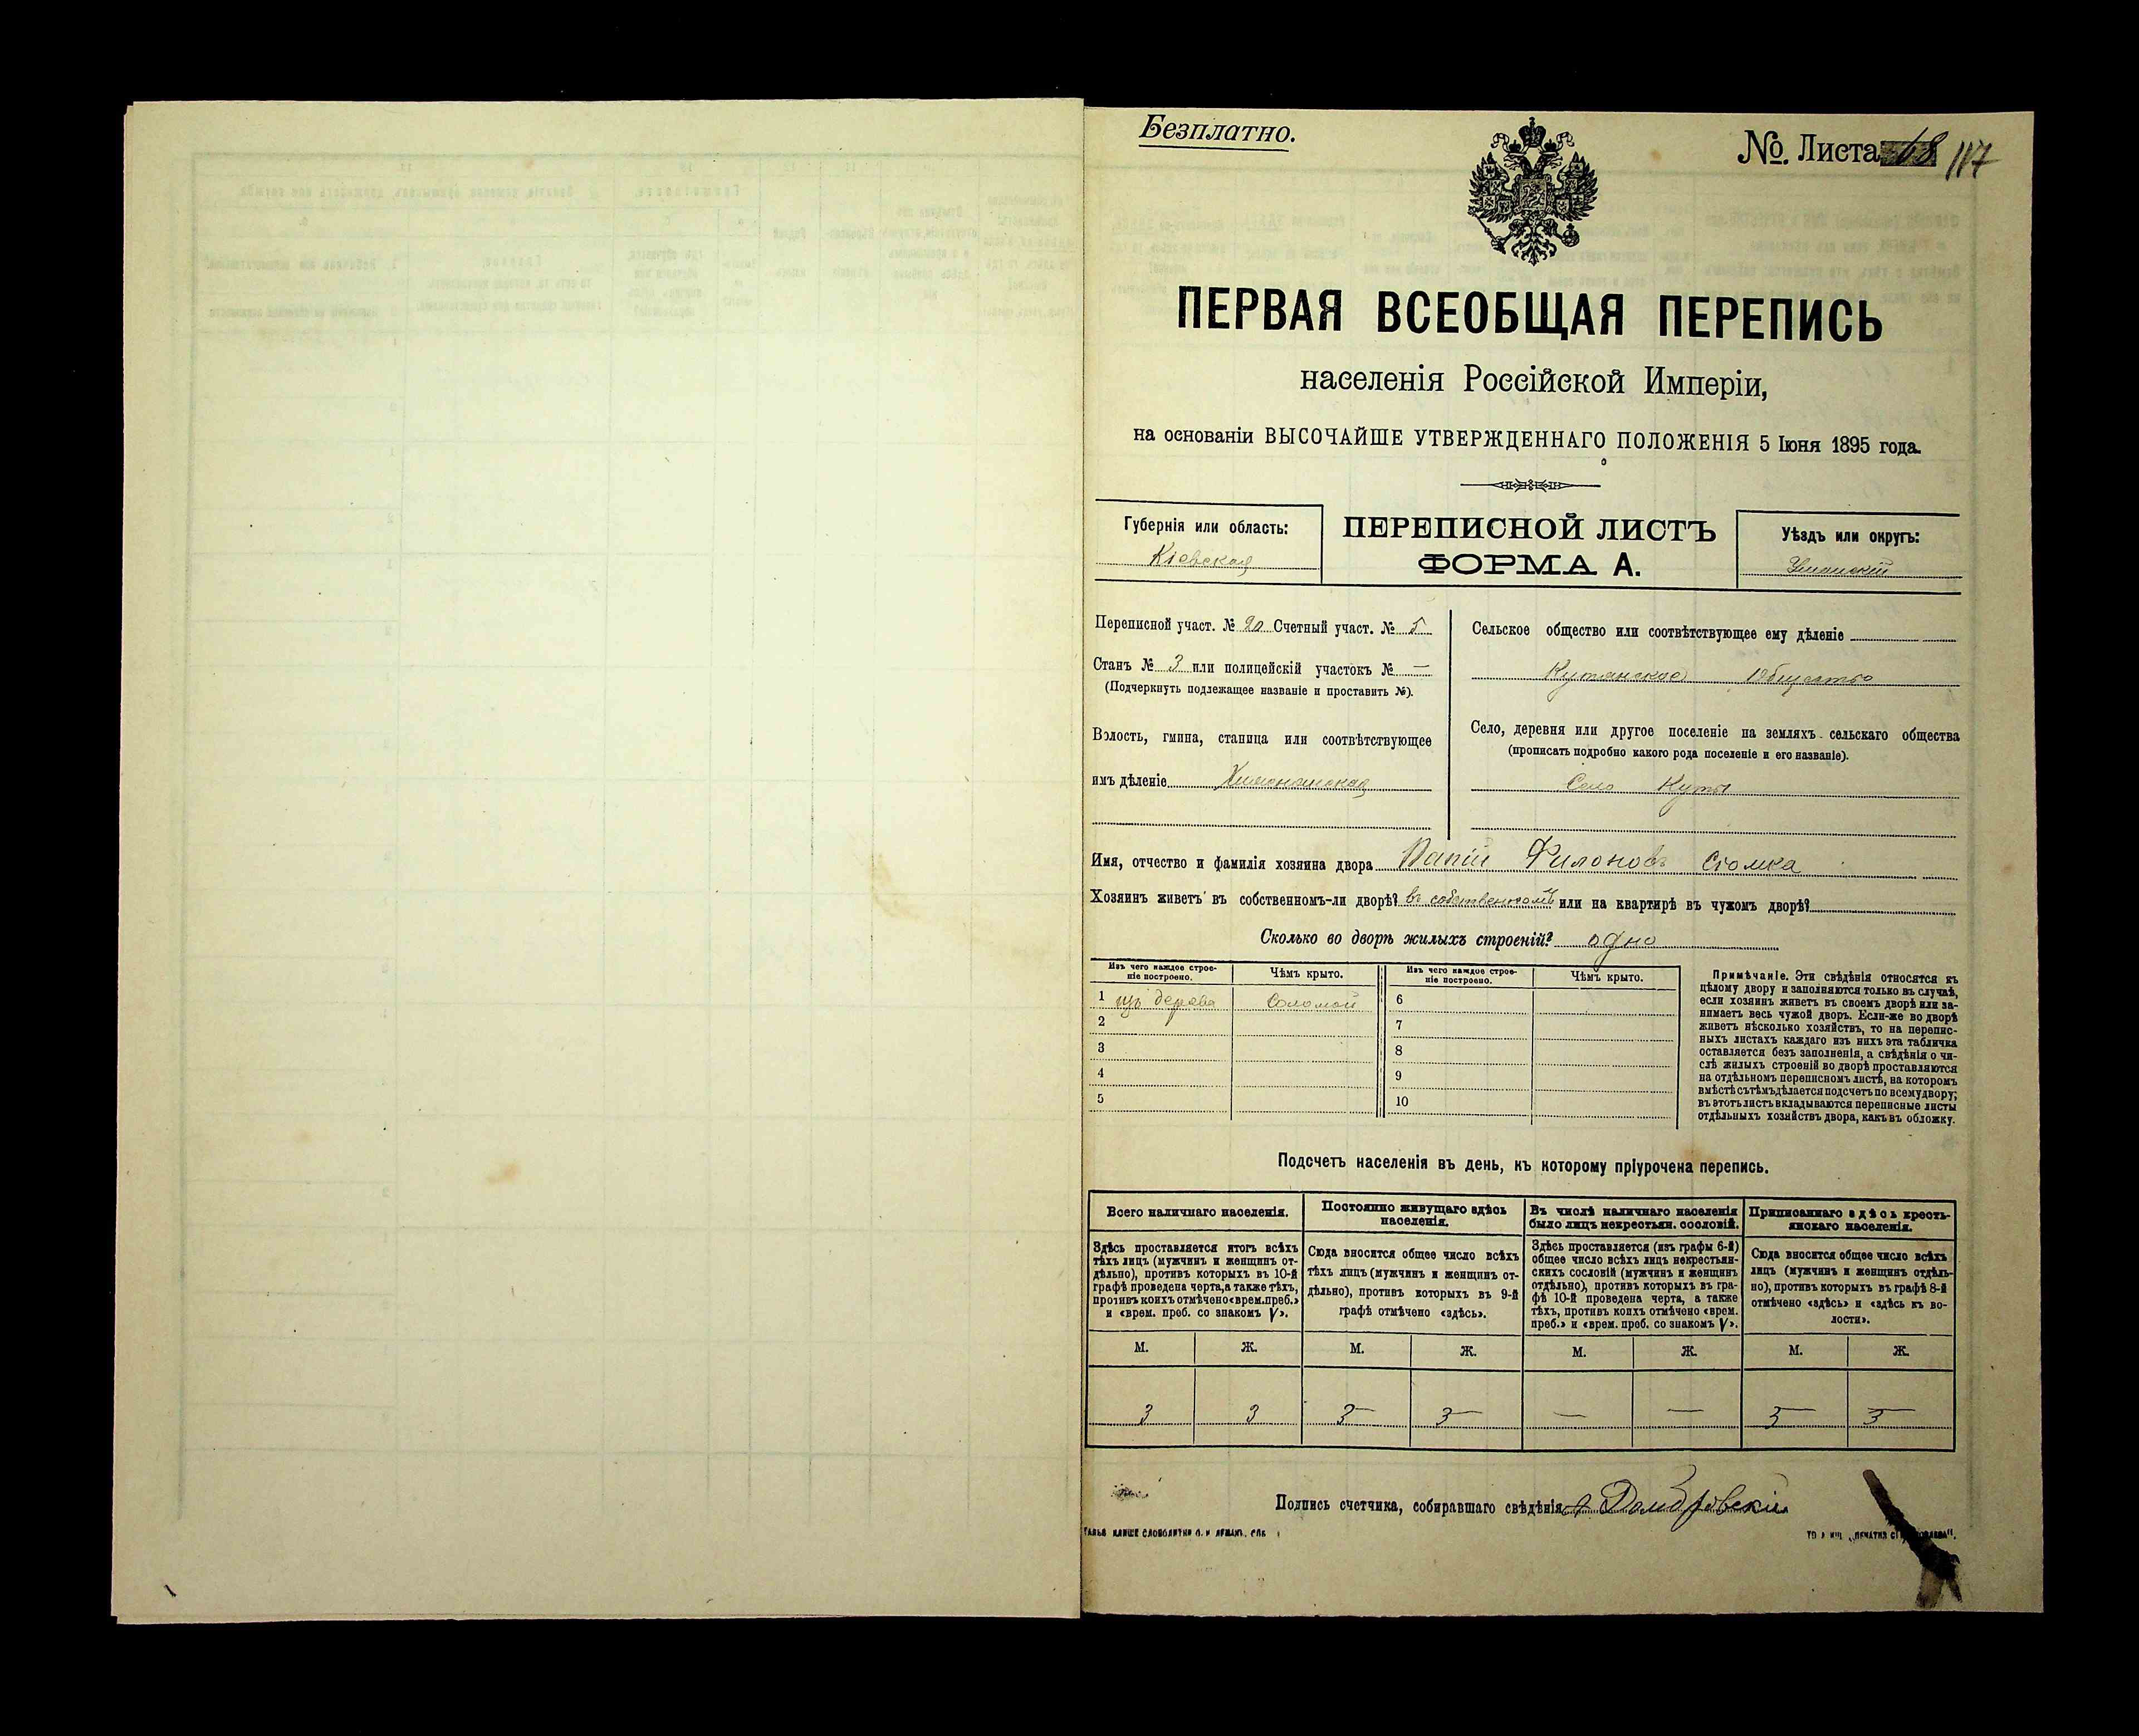 Безплатно.
№. Листа 68 117
ПЕРВАЯ ВСЕОБЩАЯ ПЕРЕПИСЬ
населенія Россійской Имперіи,
на основаніи ВЫСОЧАЙШЕ УТВЕРЖДЕННАГО ПОЛОЖЕНІЯ 5 Іюня 1895 года.
Губернія или область:
Кіевская
ПЕРЕПИСНОЙ ЛИСТЪ
ФОРМА А.
Уѣздъ или округъ:
Уманскій
Переписной участ. № 20 Счетный участ. № 5
Станъ № 3 или полицейскій участокъ № —
(Подчеркнуть подлежащее названіе и проставить №).
Волость, гмина, станица или соотвѣтствующее
имъ дѣленіе
Сельское общество или соотвѣтствующее ему дѣленіе
Кутянское Общество
Село, деревня или другое поселеніе на земляхъ сельскаго общества
(прописать подробно какого рода поселеніе и его названіе).
Село Куты
Имя, отчество и фамилія хозяина двора Филоновъ Сіомка
Хозяинъ живетъ въ собственномъ-ли дворѣ? въ собственномъ или на квартирѣ въ чужомъ дворѣ?
Сколько во дворѣ жилыхъ строеній? одно
Изъ чего каждое строе-
ніе построено.
Чѣмъ крыто.
Изъ чего каждое строе-
ніе построено.
Чѣмъ крыто.
1 изъ дерева Соломой 6
2 7
3 8
4 9
5 10
Примѣчаніе. Эти свѣдѣнія относятся къ
цѣлому двору и заполняются только въ случаѣ,
если хозяинъ живетъ въ своемъ дворѣ или за-
нимаетъ весь чужой дворъ. Если-же во дворѣ
живетъ нѣсколько хозяйствъ, то на перепис-
ныхъ листахъ каждаго изъ нихъ эта табличка
оставляется безъ заполненія, а свѣдѣнія о чи-
слѣ жилыхъ строеній во дворѣ проставляются
на отдѣльномъ переписномъ листѣ, на которомъ
вмѣстѣ съ тѣмъ дѣлается подсчетъ по всему двору;
въ этотъ листъ вкладываются переписные листы
отдѣльныхъ хозяйствъ двора, какъ въ обложку.
Подсчетъ населенія въ день, къ которому пріурочена перепись.
Всего наличнаго населенія.
Постоянно живущаго здѣсь
населенія.
Въ числѣ наличнаго населенія
было лицъ некрестьян. сословій.
Приписаннаго здѣсь кресть-
янскаго населенія.
Здѣсь проставляется итогъ всѣхъ
тѣхъ лицъ (мужчинъ и женщинъ от-
дѣльно), противъ которыхъ въ 10-й
графѣ проведена черта, а также тѣхъ,
противъ коихъ отмѣчено «врем. преб.»
и «врем. преб. со знакомъ V».
Сюда вносится общее число всѣхъ
тѣхъ лицъ (мужчинъ и женщинъ от-
дѣльно), противъ которыхъ въ 9-й
графѣ отмѣчено «здѣсь».
Здѣсь проставляется (изъ графы 6-й)
общее число всѣхъ лицъ некрестьян-
скихъ сословій (мужчинъ и женщинъ
отдѣльно), противъ которыхъ въ гра-
фѣ 10-й проведена черта, а также
тѣхъ, противъ коихъ отмѣчено «врем.
преб.» и «врем. преб. со знакомъ V».
Сюда вносится общее число всѣхъ
лицъ (мужчинъ и женщинъ отдѣль-
но), противъ которыхъ въ графѣ 8-й
отмѣчено «здѣсь» и «здѣсь въ во-
лости».
М. Ж. М. Ж. М. Ж. М. Ж.
3 3 3 3 — — 3 3
Подпись счетчика, собиравшаго свѣдѣнія Домбровскій